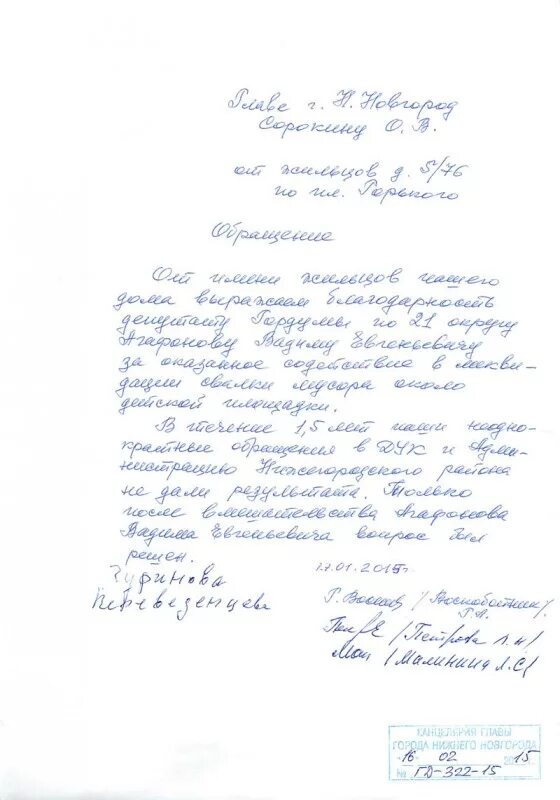 Главе г. Н. Новгород
Сорокину О. В.
от жильцов д. 5/76
по пл. Горького
Обращение
От имени жильцов нашего
дома выражаем благодарность
депутату Гордумы по 21 округу
Агафонову Вадиму Евгеньевичу
за оказанное содействие в ликви-
дации свалки мусора около
детской площадки.
В течение 1,5 лет наши неодно-
кратные обращения в ДУК и Адми-
нистрацию Нижегородского района
не дали результата. Только
после вмешательства Агафонова
Вадима Евгеньевича вопрос был
решен.
.01.2015г.
Чуфинова
Переведенцева
Г.
Г.А.
/Петрова Л.Н/
/Малинина Л.С/
КАНЦЕЛЯРИЯ ГЛАВЫ
ГОРОДА НИЖНЕГО НОВГОРОДА
16 02 2015
№ ГД-322-15